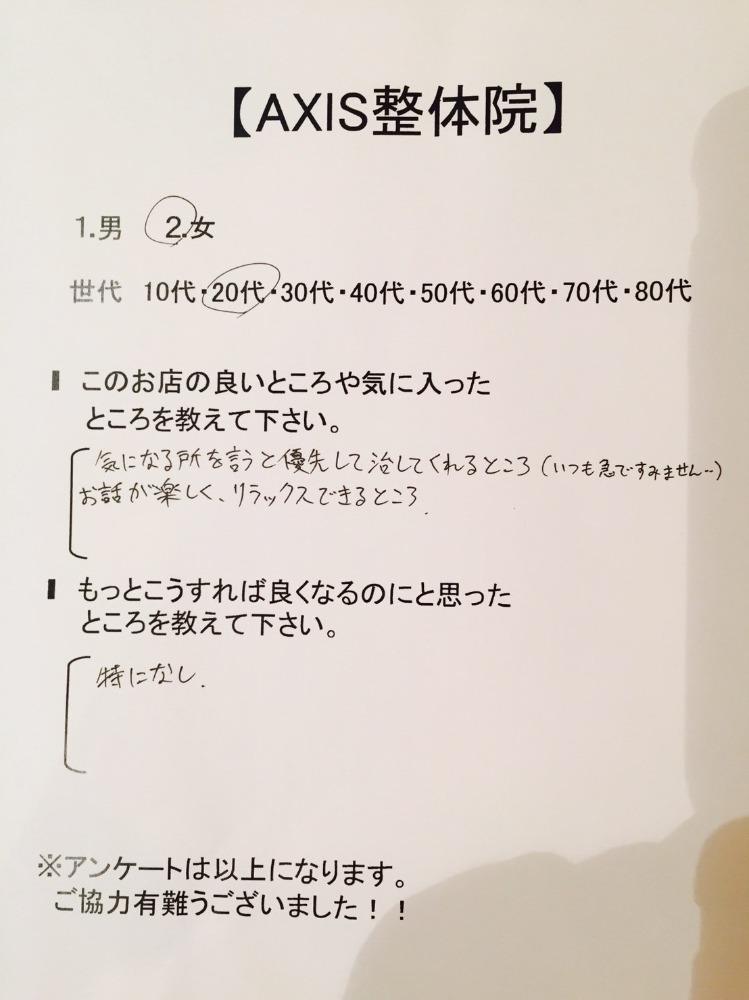 【AXIS整体院】
1.男 2.女
世代 10代・20代・30代・40代・50代・60代・70代・80代
このお店の良いところや気に入った
ところを教えて下さい。
気になる所を言うと優先して治してくれるところ(いつも急ですみません…)
お話が楽しく、リラックスできるところ.
もっとこうすれば良くなるのにと思った
ところを教えて下さい。
特になし.
※アンケートは以上になります。
ご協力有難うございました！！